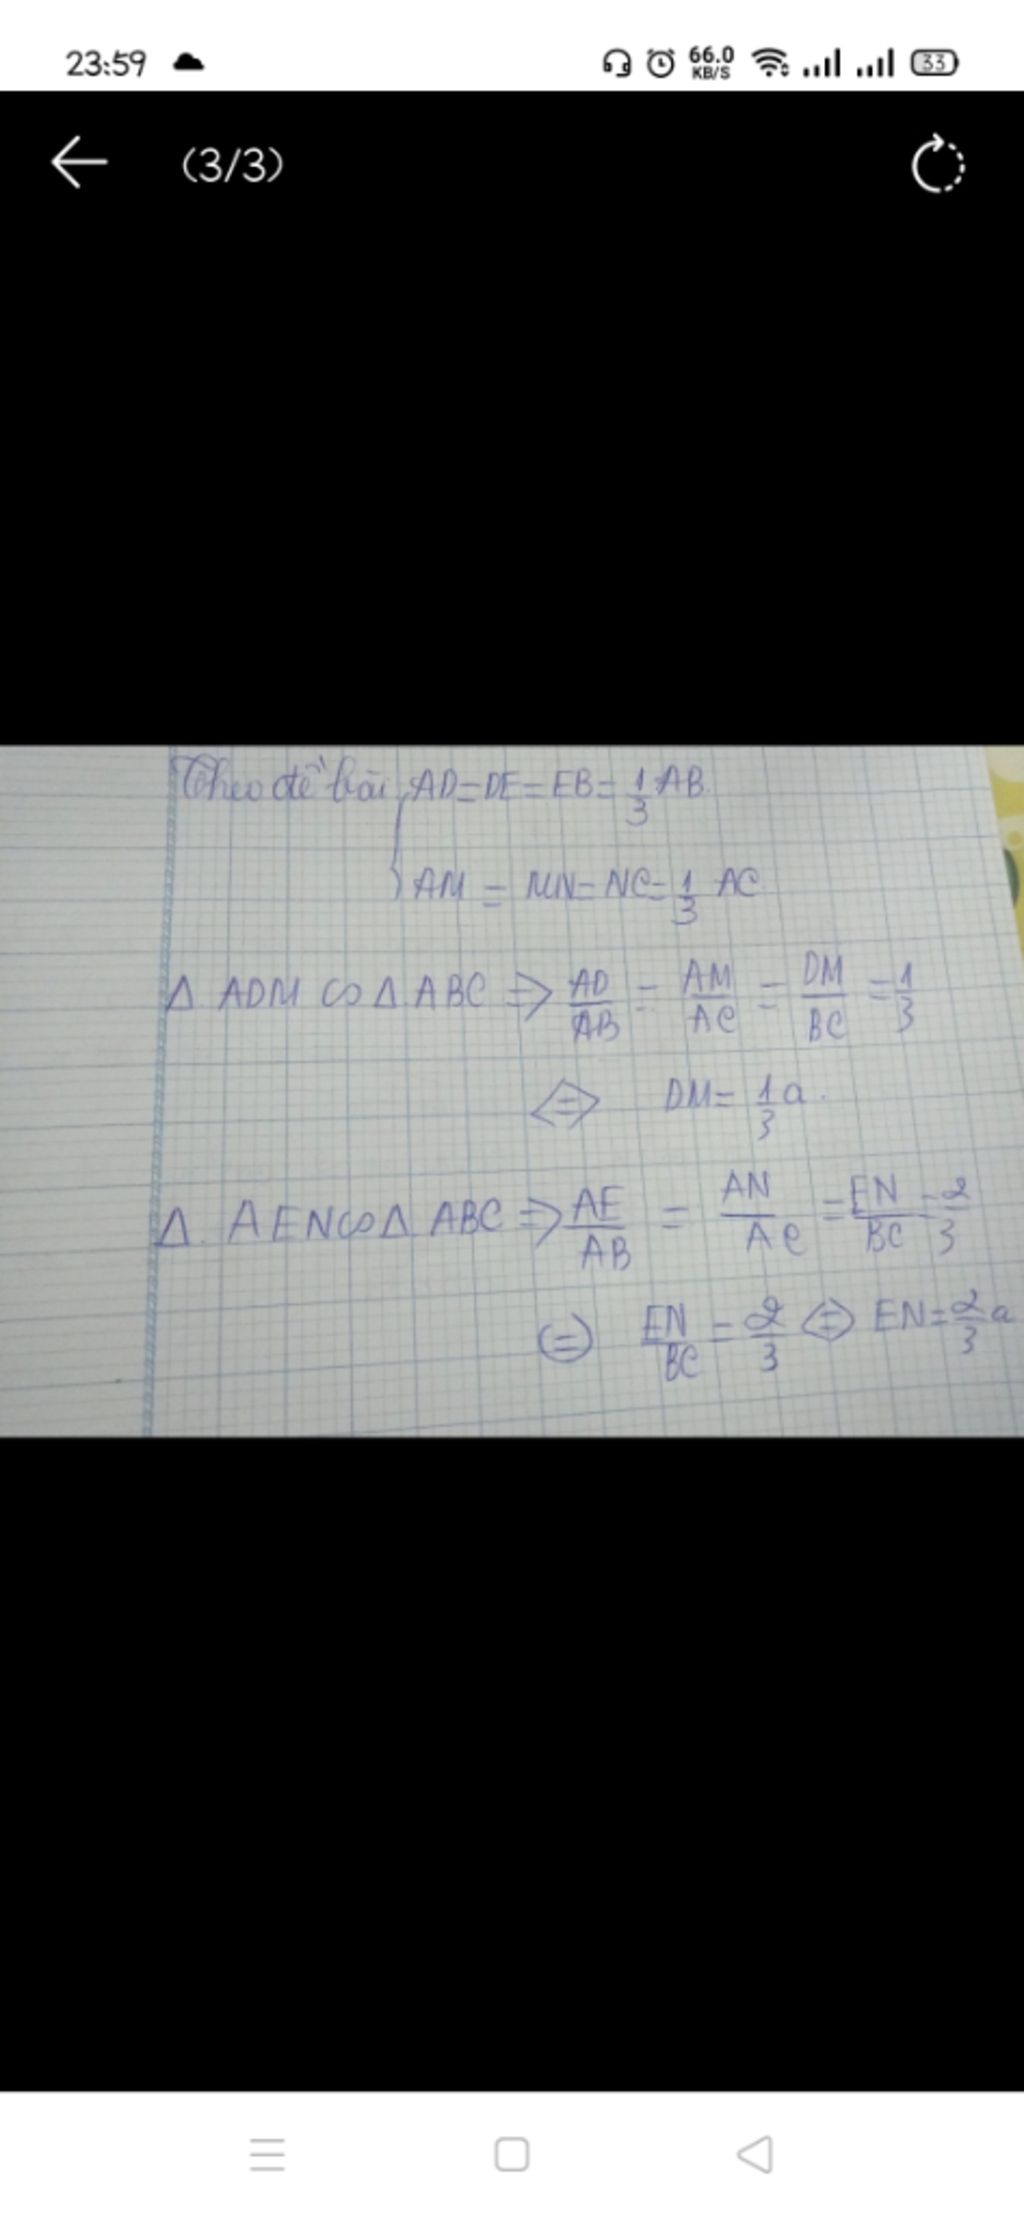 23:59 66.0 KB/S 33
(3/3)
Theo đề bài AD=DE=EB=1/3 AB
AM = MN=NC=1/3 AC
Δ ADM ∽ Δ ABC => AD/AB = AM/AC = DM/BC = 1/3
<=> DM= 1/3 a.
Δ AEN ∽ Δ ABC => AE/AB = AN/AC = EN/BC = 2/3
(=) EN/BC = 2/3 <=> EN=2/3 a